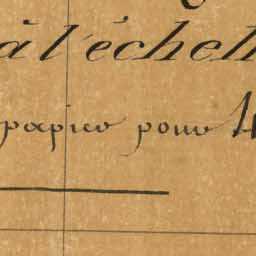 à l'échell
papier pour